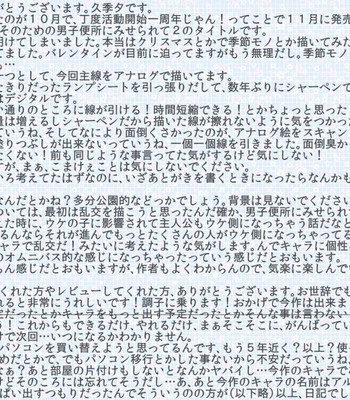 がとうございます。久季夕です。
なのが１０月で、丁度活動開始一周年じゃん！ってことで１１月に発売
そのための男子便所にみせられて２のタイトルです。
明けてしまいました。本当はクリスマスとかで季節モノとか描いてみた
た。バレンタインが目前に迫ってますがもう無理だし。季節モノ
…
一つとして、今回主線をアナログで描いてます。
たきりだったランプシートを引っ張りだして、数年ぶりにシャーペンで
はデジタルです。
い通りのところに線が引ける！時間短縮できる！とかちょっと思った
量は増えるしシャーペンだから描いた線が擦れないように気をつかっ
ていうね、そしてなにより面倒くさかったのが、アナログ絵をスキャン
塗りつぶしが出来ないっていうね、一個一個線を引きました。面倒臭か
たくない！前も同じような事言ってた気がするけど気にしない！
すが、まぁ、こまけぇことは気にしないでください。
いろ考えてたはずなのに、いざあとがきを書くときになったらなんかも
なんだとかね？多分公園的などっかでしょう。背景は見ないでください
ついては、最初は乱交を描こうと思ったんだ確か、男子便所にみせられ
えた時に、ウケの子に影響されて主人公もウケ側になっちゃう話だなと
るんならそれが進んでもっとたくさんの人がウケ側になっちゃってる
キャラで乱交だ！みたいに考えたような気がします。んでキャラに個性
のオムニバス的な感じになっちゃったっていう感じだとおもいます。
ちん感じだとおもいますが、作者もよくわからんので、気楽に楽しんで
くれた方やレビューしてくれた方、ありがとうございます。お世辞でも
れると非常にうれしいです！調子に乗ります！おかげで今作は出来ま
定だったとかキャラをもっと出す予定だったとかそんな事は言わない
う！これからもできるだけ、やれるだけ、まぁそこそこに、がんばってい
けで次回…いつになるかわかりません。
パソコンを買い替えようと思ってるんです。もう５年近く？以上？使
めだとかで、でもパソコン移行とかした事ないから不安だっていうね
なぁ？あと部屋の片付けもしないとなんかヤバイし…今作のキャラで
けどそのころには忘れてそうだし…あ、あと今作のキャラの名前はアル
ぱい出すつもりもちだったので（ｒｙ 以上、日記でし